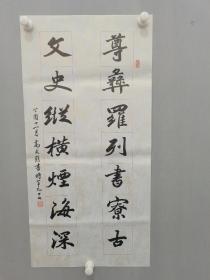 尊彝羅列書寮古
文史縱橫煙海深